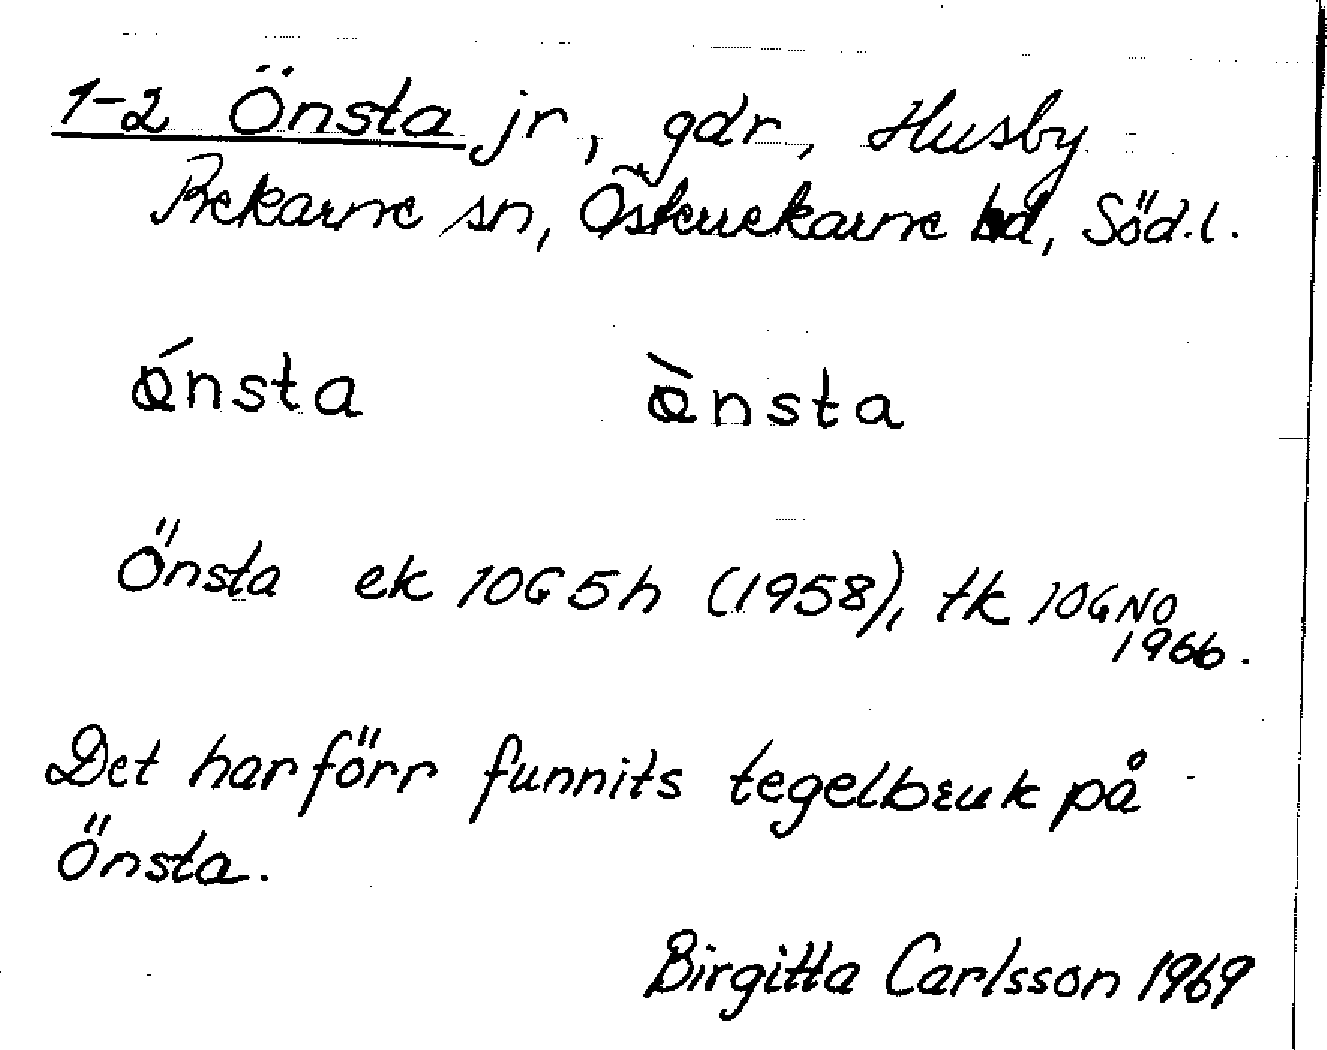 1-2 Önsta jr, gdr, Husby
Rekarne sn, Österrekarne hd, Söd.l.
Önsta ek 10G5h (1958), tk 10GNO
1966.
Det har förr funnits tegelbruk på
Önsta.
Birgitta Carlsson 1969